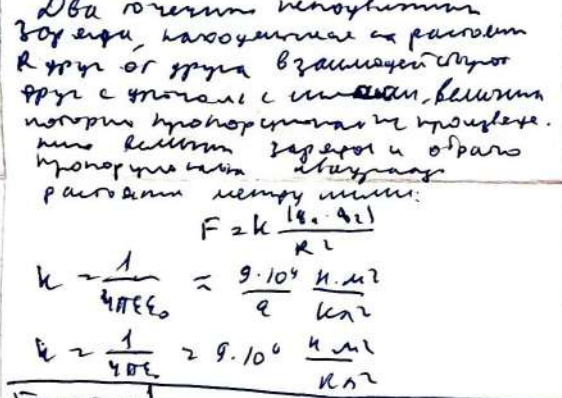 Два точечных неподвижных
заряда, находящиеся на расстоян
R друг от друга взаимодействуют
друг с другом с силами, величина
которых пропорциональна произведе-
нию величин зарядов и обратно
пропорциональна квадрату
расстояния между ними:
F = k |q₁ · q₂| / R²
k = 1 / 4πεε₀ ≈ 9·10⁹ / ε Н·м² / Кл²
k = 1 / 4πε₀ = 9·10⁹ Н м² / Кл²